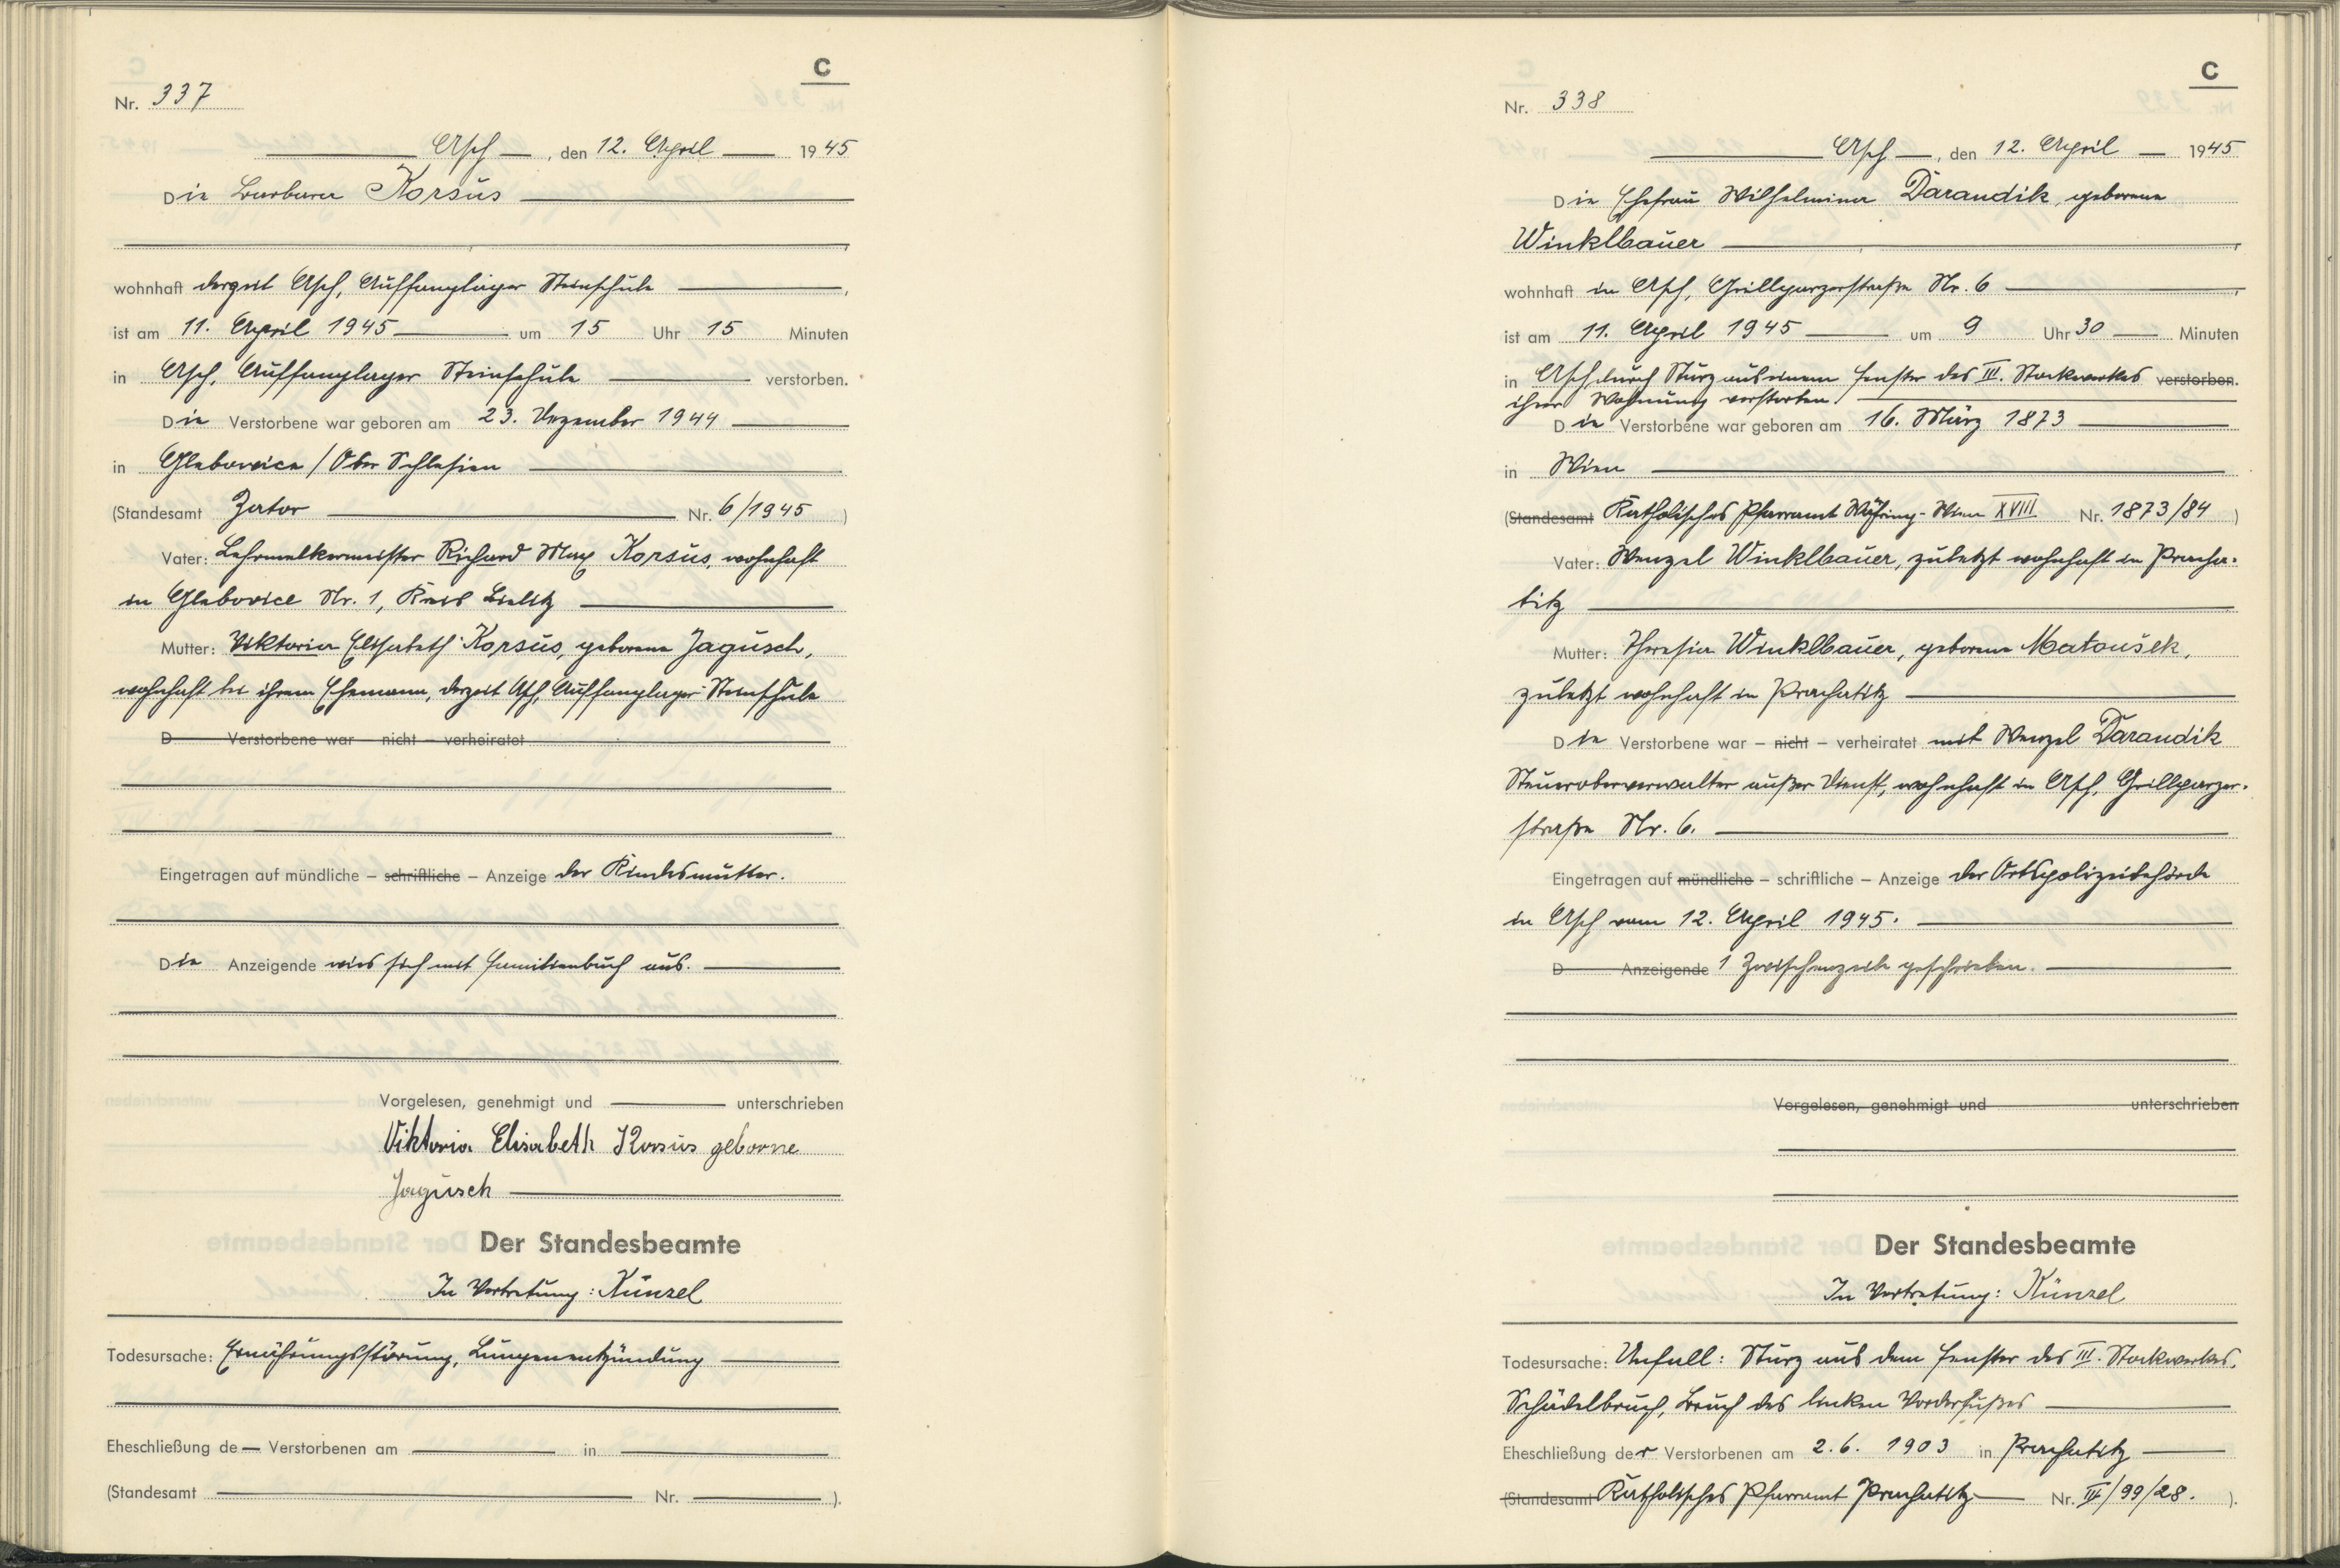 C
Nr. 337
Asch, den 12. April 1945
Die Barbara Korsus
wohnhaft derzeit Asch, Auffanglager Steinschule,
ist am 11. April 1945 um 15 Uhr 15 Minuten
in Asch, Auffanglager Steinschule verstorben.
Die Verstorbene war geboren am 23. Dezember 1944
in Glebowice / Ober Schlesien
(Standesamt Zator Nr. 6/1945)
Vater: Lehrmelkermeister Richard Max Korsus, wohnhaft
in Glebovice Nr. 1, Kreis Bielitz
Mutter: Viktoria Elisabeth Korsus, geborene Jagusch,
wohnhaft bei ihrem Ehemann, derzeit Asch, Auffanglager Steinschule
D Verstorbene war – nicht – verheiratet
Eingetragen auf mündliche – schriftliche – Anzeige der Kindesmutter.
Die Anzeigende wies sich mit Familienbuch aus.
Vorgelesen, genehmigt und unterschrieben
Viktoria Elisabeth Korsus geborne
Jagusch
Der Standesbeamte
In Vertretung: Künzel
Todesursache: Ernährungsstörung, Lungenentzündung
Eheschließung de Verstorbenen am in
(Standesamt Nr. ).
C
Nr. 338
Asch, den 12. April 1945
Die Ehefrau Wilhelmina Darandik, geborene
Winklbauer,
wohnhaft in Asch, Grillparzerstraße Nr. 6,
ist am 11. April 1945 um 9 Uhr 30 Minuten
in Asch durch Sturz aus einem Fenster des III. Stockwerkes verstorben.
ihrer Wohnung verstorben.
Die Verstorbene war geboren am 16. März 1873
in Wien
(Standesamt Katholisches Pfarramt Währing-Wien XVIII Nr. 1873/84)
Vater: Wenzel Winklbauer, zuletzt wohnhaft in Pracha-
titz
Mutter: Theresia Winklbauer, geborene Matoušek,
zuletzt wohnhaft in Prachatitz
Die Verstorbene war – nicht – verheiratet mit Wenzel Darandik
Steueroberverwalter außer Dienst, wohnhaft in Asch, Grillparzer-
straße Nr. 6.
Eingetragen auf mündliche – schriftliche – Anzeige der Ortspolizeibehörde
in Asch vom 12. April 1945.
D Anzeigende 1 Zwischenzeile geschrieben.
Vorgelesen, genehmigt und unterschrieben
Der Standesbeamte
In Vertretung: Künzel
Todesursache: Unfall: Sturz aus dem Fenster des III. Stockwerkes,
Schädelbruch, Bruch des linken Vorderfußes
Eheschließung der Verstorbenen am 2.6. 1903 in Prachatitz
(Standesamt Katholisches Pfarramt Prachatitz Nr. IV/99/28. ).